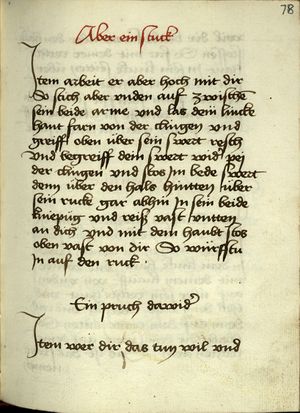 78
Aber ein stuck
Item arbeit er aber hoch mit dir
So stich aber vnden auf zwischen
sein beide arme vnd las dein lincke
hant farn von der clingen vnd
greiff oben über sein swert resch
vnd begreiff dein swert wider pei
der clingen vnd stos im bede swert
denn über den hals hintten über
sein rucke gar abhin in sein beide
kniepüg vnd reis vast vntten
an dich vnd mit dem haubt stos
oben vast von dir So würffstu
in auf den ruck .
Ein pruch dawider
Item wer dir das tun wil vnd